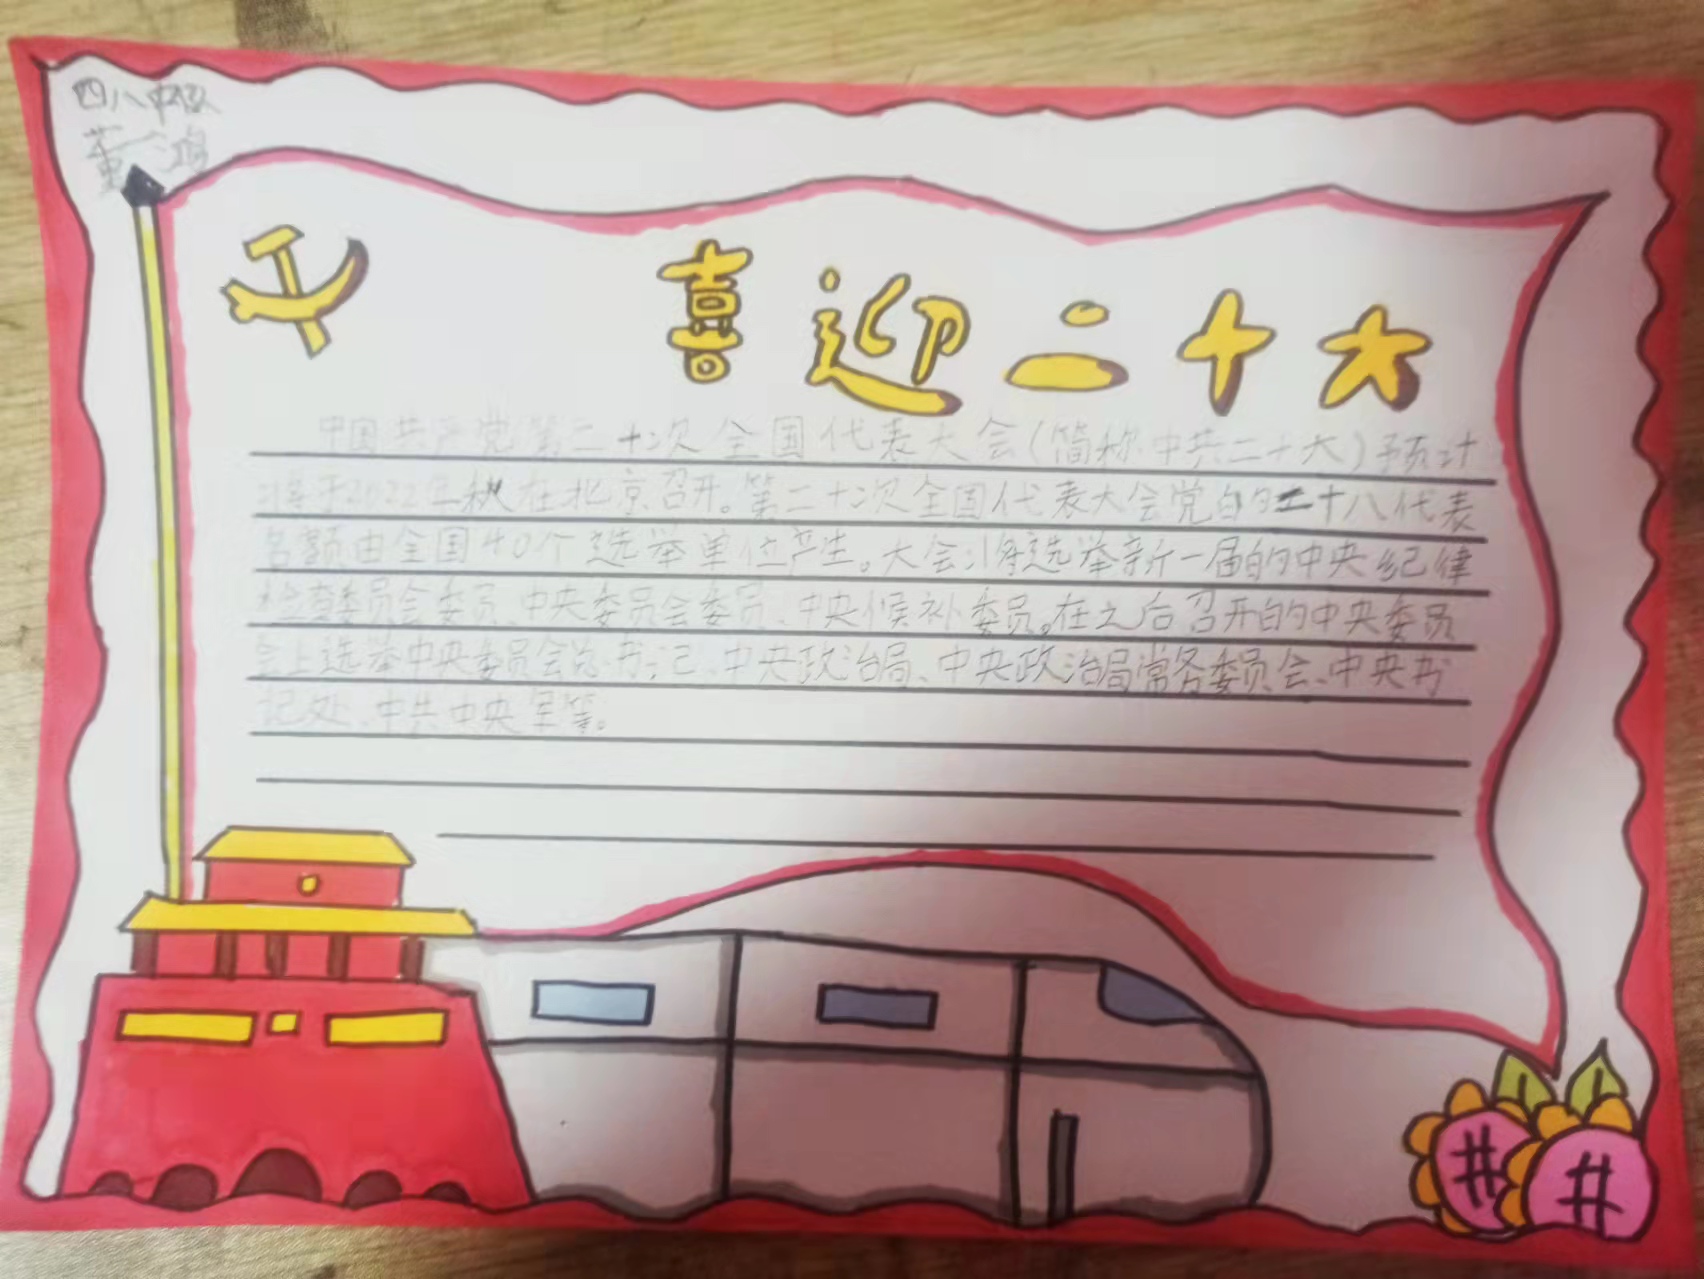 四八中队
董一鸿
喜迎二十大
中国共产党第二十次全国代表大会(简称中共二十大)预计
将于2022年秋在北京召开。第二十次全国代表大会党的二十八代表
名额由全国40个选举单位产生。大会将选举新一届的中央纪律
检查委员会委员、中央委员会委员、中央候补委员。在之后召开的中央委员
会上选举中央委员会总书记、中央政治局、中央政治局常务委员会、中央书
记处、中共中央军等。
井 井